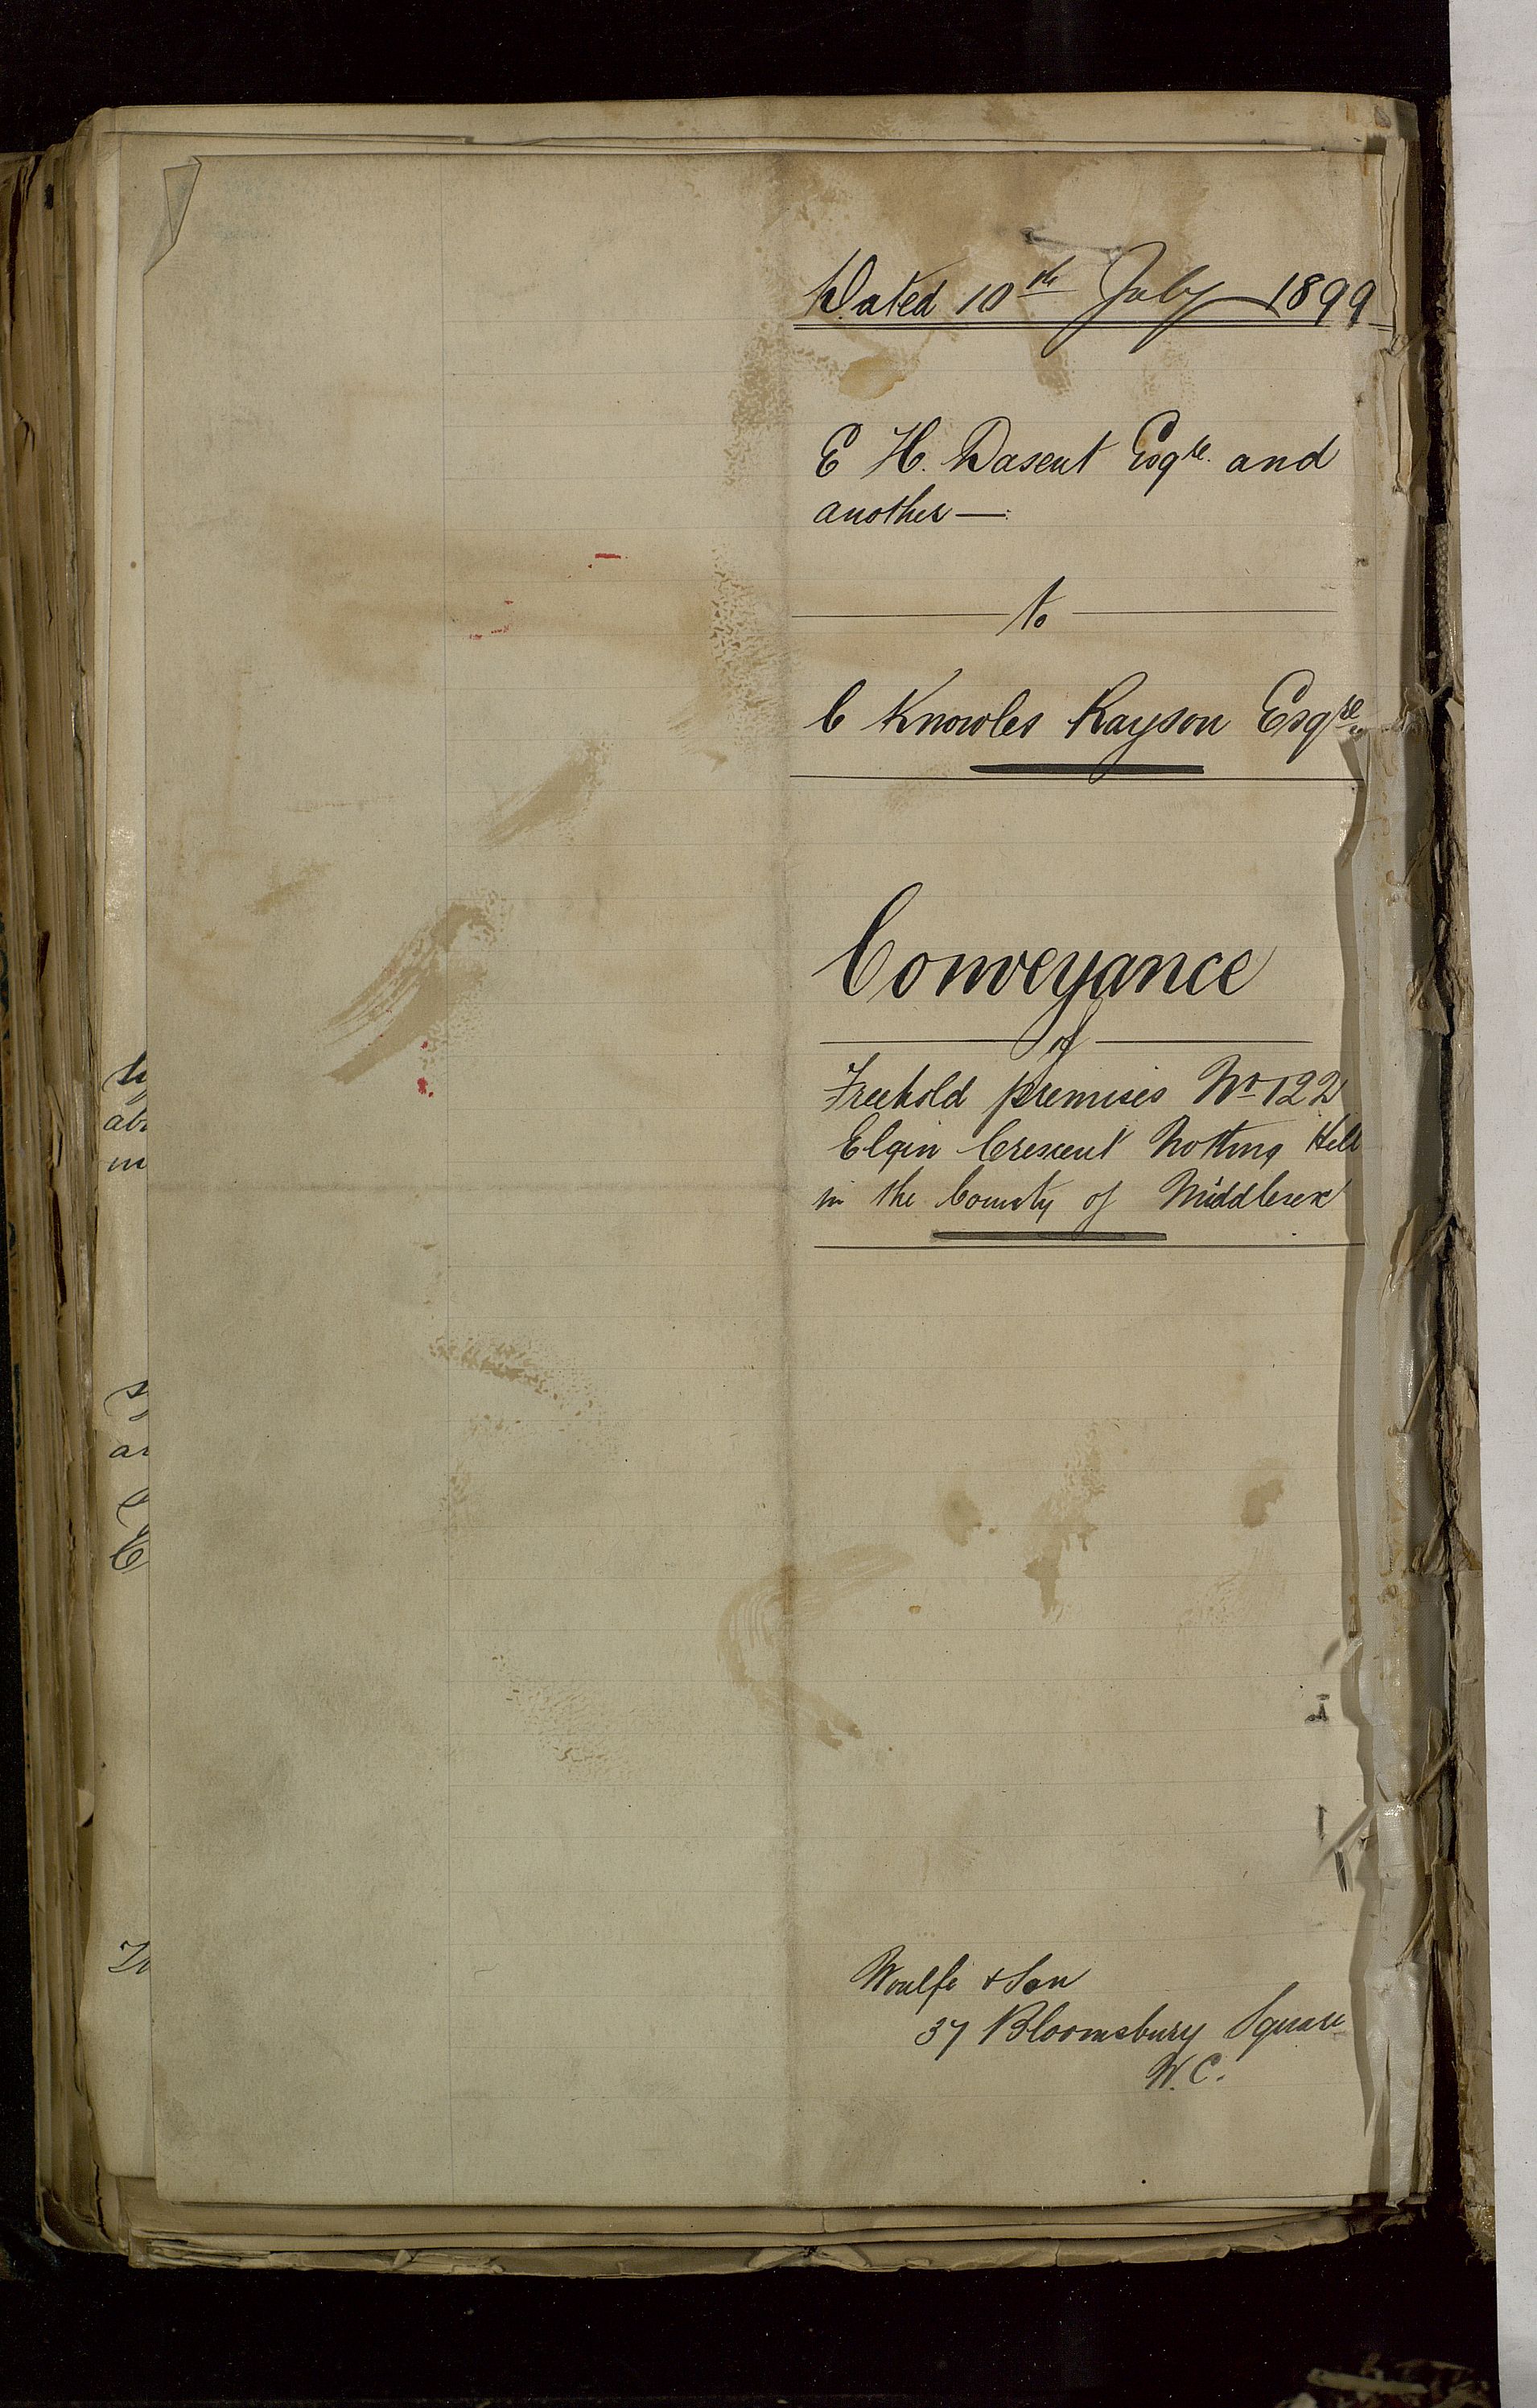 Dated 10th July 1899
E H. Dasent Esqre. and
another —
to
C Knowles Rayson Esqre
Conveyance
of
Freehold premises No 122
Elgin Crescent Notting Hill
in the County of Middlesex
Woulfe & Son
37 Bloomsbury Square
W.C.